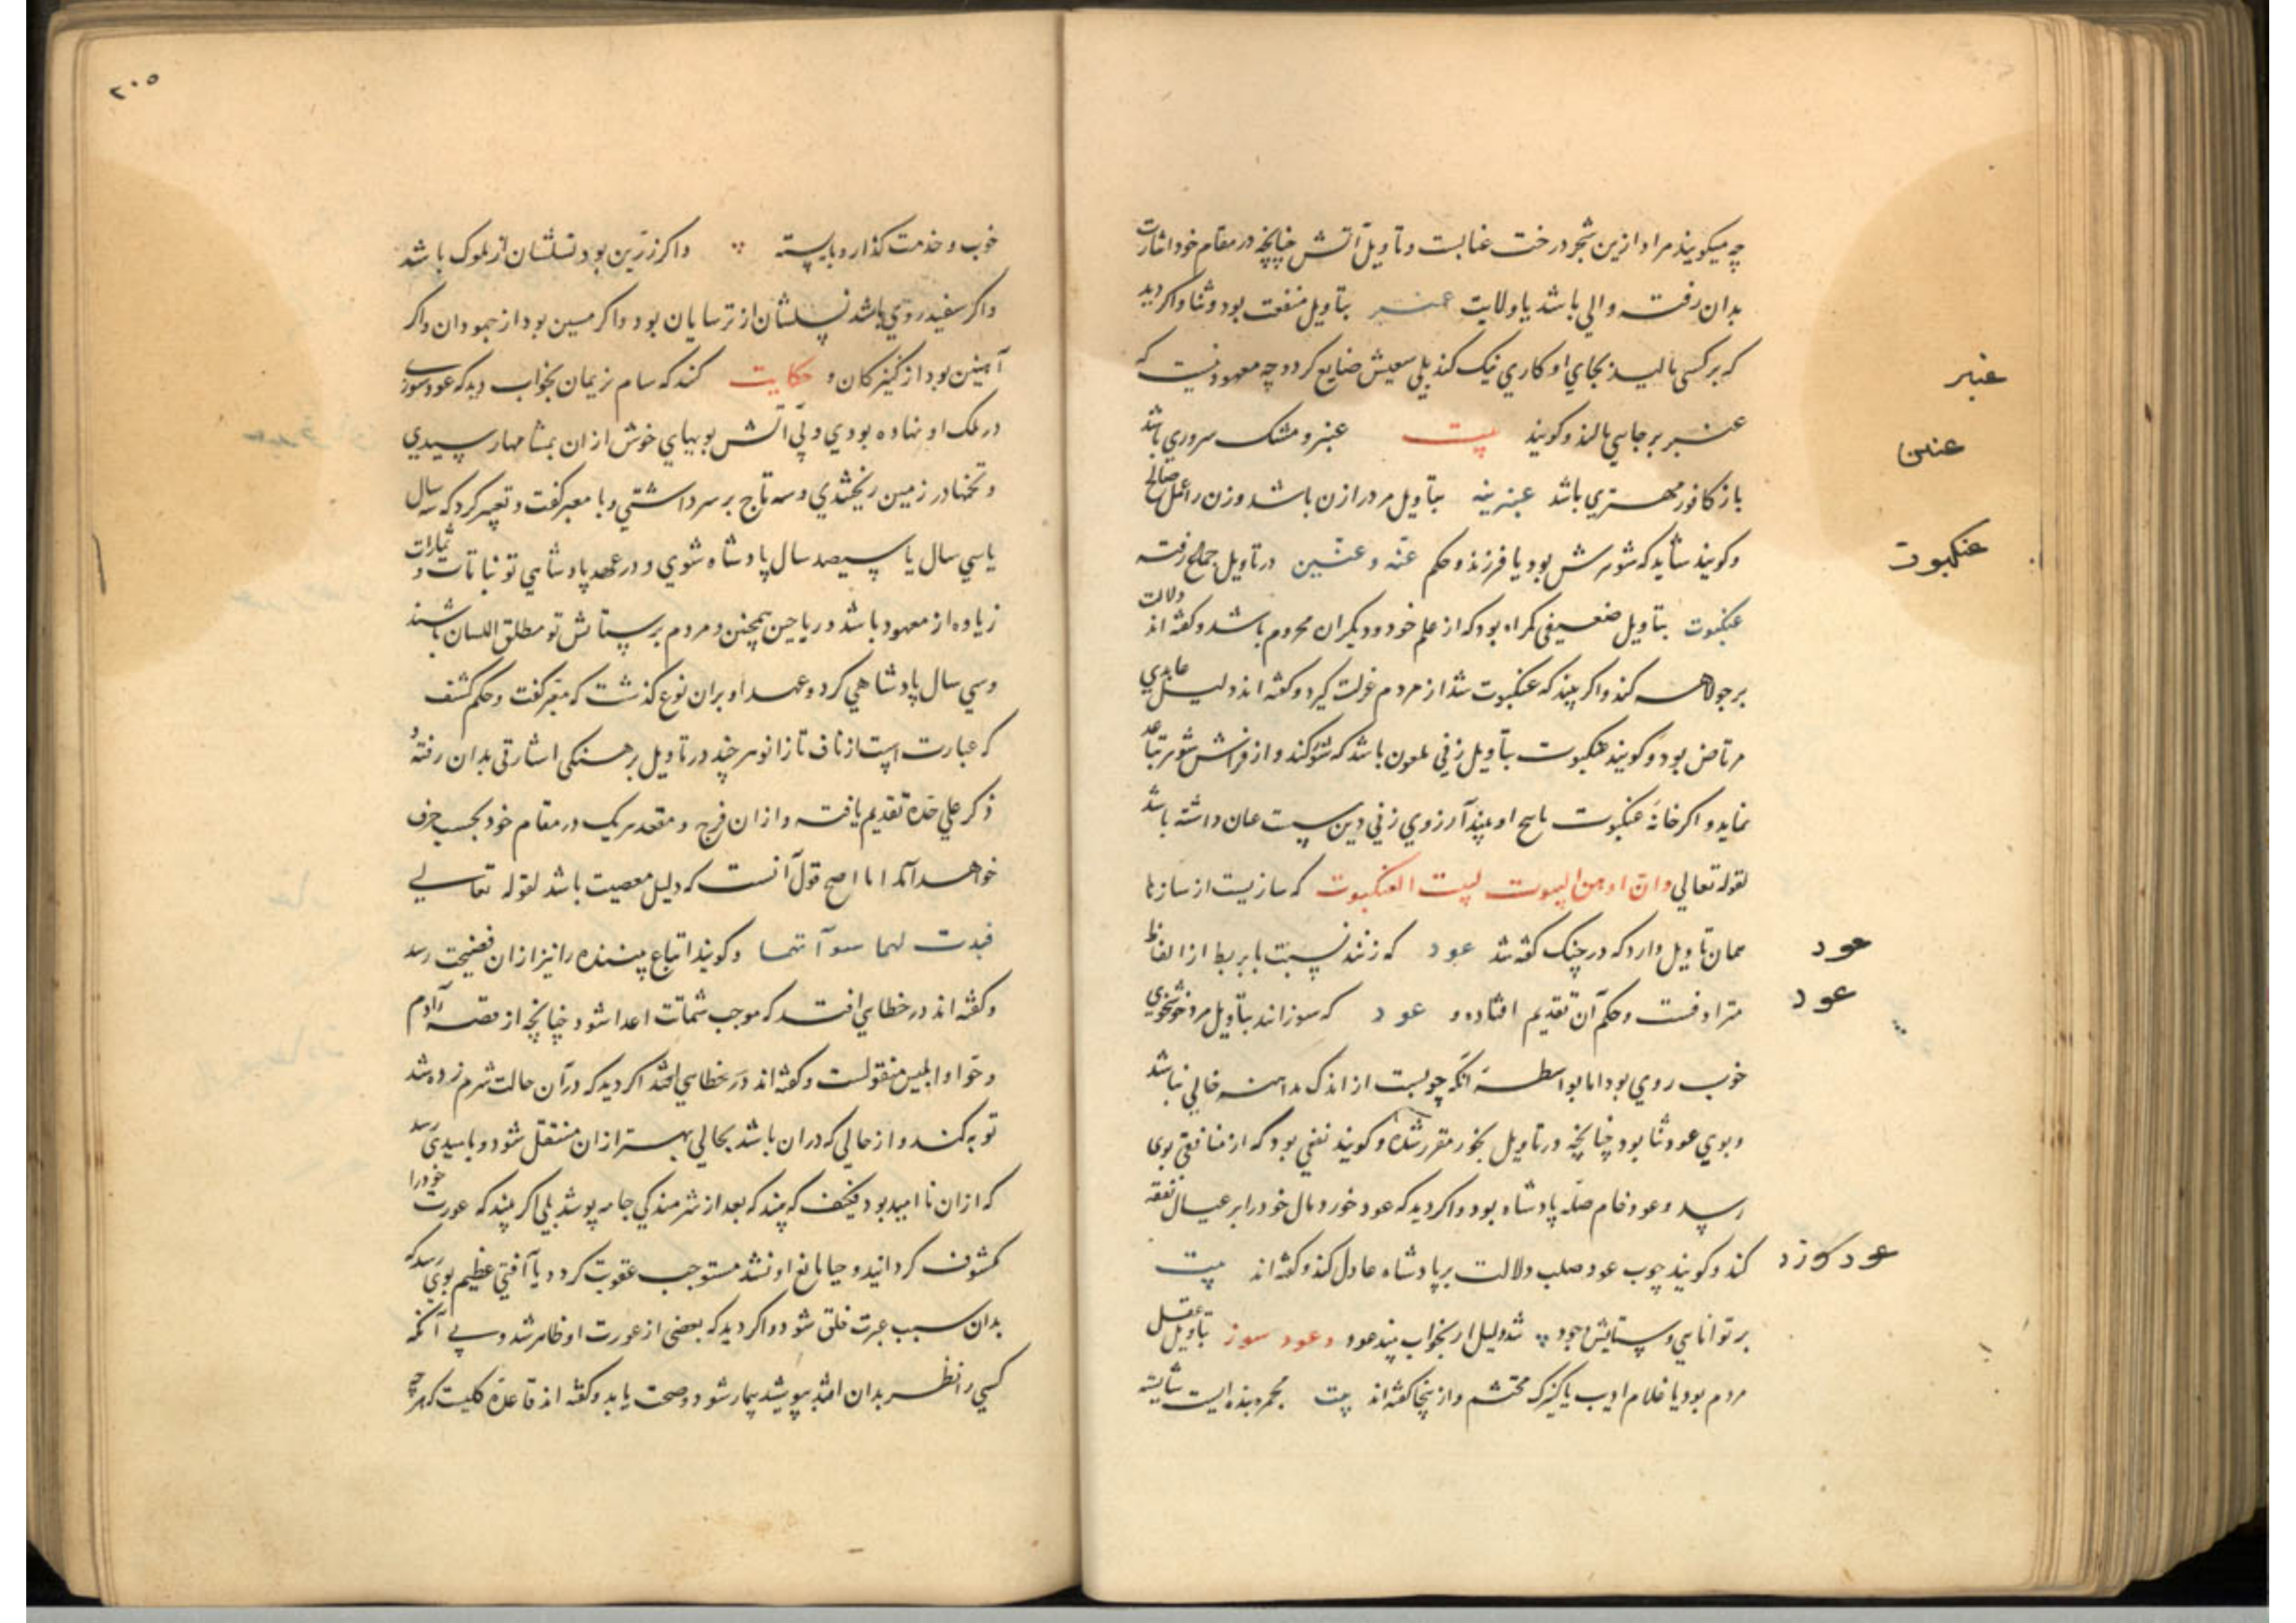 چه میکویند مراد ازین شجر درخت عنابست و تاویل آتش چنانچه در مقام خود اشارت
بدان رفته والی باشد یا ولایت عنبر بتاویل منفعت بود و ثنا و اکر دید
که بر کسی مالید بجای او کاری نیک کند بلی سعیش ضایع کردد چه معهود نیست که
عنبر بر جایی مالند و کویند بیت عنبر و مشک سروری باشد
باز کافور مهتری باشد عنبرینه بتاویل مرد را زن باشد و زن را عمل صالح
و کویند شاید که شوهرش بود یا فرزند و حکم عنه و عنین در تاویل جماع رفته
عنکبوت بتاویل ضعیفی کمراه بود که از علم خود و دیکران محروم باشد و کفته اند دلالت
بر جولاهه کند و اکر بیند که عنکبوت شد از مردم عزلت کیرد و کفته اند دلیل عابدی
مرتاض بود و کویند عنکبوت بتاویل زنی ملعون باشد که نشوز کند و از فراش شوهر تباعد
نماید و اکر خانه عنکبوت یا نسج او بیند آرزوی زنی دین سست عان داشته باشد
لقوله تعالی وان اوهن البیوت لبیت العنکبوت که سازیست از سازها
همان تاویل دارد که در چنک کفته شد عود که زنند نسبت با بربط از الفاظ
مترادفست و حکم آن تقدیم افتاده و عود که سوزانند بتاویل مرد خوشخوی
خوب روی بود اما بواسطه آنکه چوبست از اندک مداهنه خالی نباشد
و بوی عود ثنا بود چنانچه در تاویل بخور مقرر شده و کویند نفعی بود که از منافقی بوی
رسد و عود خام صله پادشاه بود و اکر دید که عود خورد مال خود را بر عیال نفقه
کند و کویند چوب عود صلب دلالت بر پادشاه عادل کند و کفته اند بیت
بر توانایی و ستایش وجود شد دلیل ار بخواب بیند عود و عود سوز بتاویل عقل
مردم بود یا غلام ادیب یا کنیزک محتشم و از ینجا کفته اند بیت مجمره بنده ایست شایسته
عنبر
عنین
عنکبوت
عود
عود
عود
۲۰۵
خوب و خدمت کذار و بایسته و اکر زرین بود نسلشان از ملوک باشد
و اکر سفید روی باشد نسلشان از ترسایان بود و اکر مسین بود از جهودان و اکر
آهنین بود از کنیزکان و حکایت کنند که سام نریمان بخواب دید که عود سوزی
در ملک او نهاده بودی و بی آتش بویهای خوش از ان بمشامها رسیدی
و تخمها در زمین ریختندی و سه تاج بر سر داشتی و با معبر کفت و تعبیر کرد که سه سال
یا سی سال یا سیصد سال پادشاه شوی و در عهد پادشاهی تو نباتات و ثمارات
زیاده از معهود باشد و ریاحین همچنین و مردم بر ستایش تو مطلق اللسان باشند
و سی سال پادشاهی کرد و عهد او بران نوع کذشت که معبر کفت و حکم کشف
که عبارت است از ناف تا زانو هر چند در تاویل برهنکی اشارتی بدان رفته و
ذکر علی حده تقدیم یافته و ازان فرج و مقعد هریک در مقام خود بحسب حرف
خواهد آمد اما اصح قول آنست که دلیل معصیت باشد لقوله تعالی
فبدت لهما سوآتهما و کویند اتباع بیننده را نیز ازان فضیحت رسد
و کفته اند در خطایی افتد که موجب شماتت اعدا شود چنانچه از قصه آدم
و حوا و ابلیس منقولست و کفته اند در خطایی افتد اکر دید که در آن حالت شرم زده شد
توبه کند و از حالی که دران باشد بحالی بهتر ازان منتقل شود و بامیدی رسد
که ازان ناامید بود فکیف که بیند که بعد از شرمندکی جامه پوشد بلی اکر بیند که عورت خود را
مکشوف کردانید و حیا مانع او نشد مستوجب عقوبت کردد یا آفتی عظیم بوی رسد که
بدان سبب عبرت خلق شود و اکر دید که بعضی از عورت او ظاهر شد و بی آنکه
کسی را نظر بدان افتد بپوشید بیمار شود و صحت یابد و کفته اند قاعده کلیست که هر چه